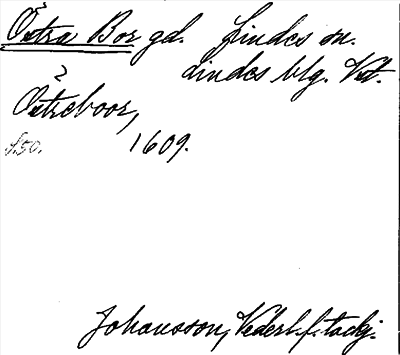 Östra Bor gd. Lindes sn.
Lindes blg. Vstm.
Östreboor,
s. 50. 1609.
Johansson, Vederl. f. tackj.